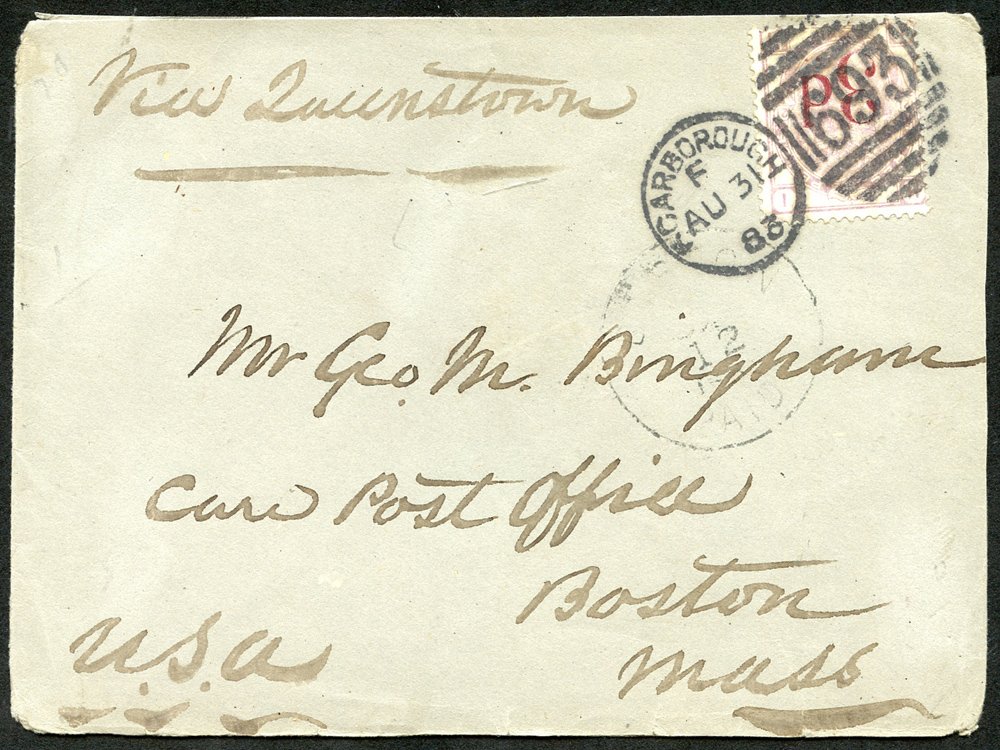 Via Queenstown
3d
693
SCARBOROUGH
F
AU 31
83
12
PAID
Mr Geo. M. Bingham
Care Post Office
Boston
Mass
U.S.A